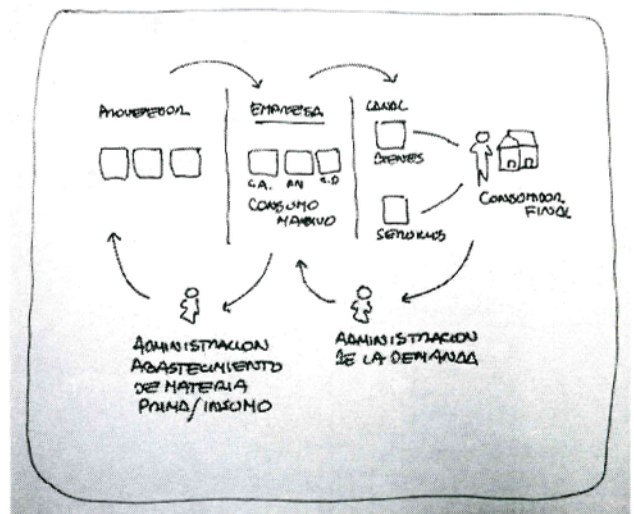 PROVEEDOR
EMPRESA
CANAL
BIENES
C.A. AN C.D
CONSUMO
MASIVO
SERVICIOS
CONSUMIDOR
FINAL
ADMINISTRACION
ABASTECIMIENTO
DE MATERIA
PRIMA/INSUMO
ADMINISTRACION
DE LA DEMANDA